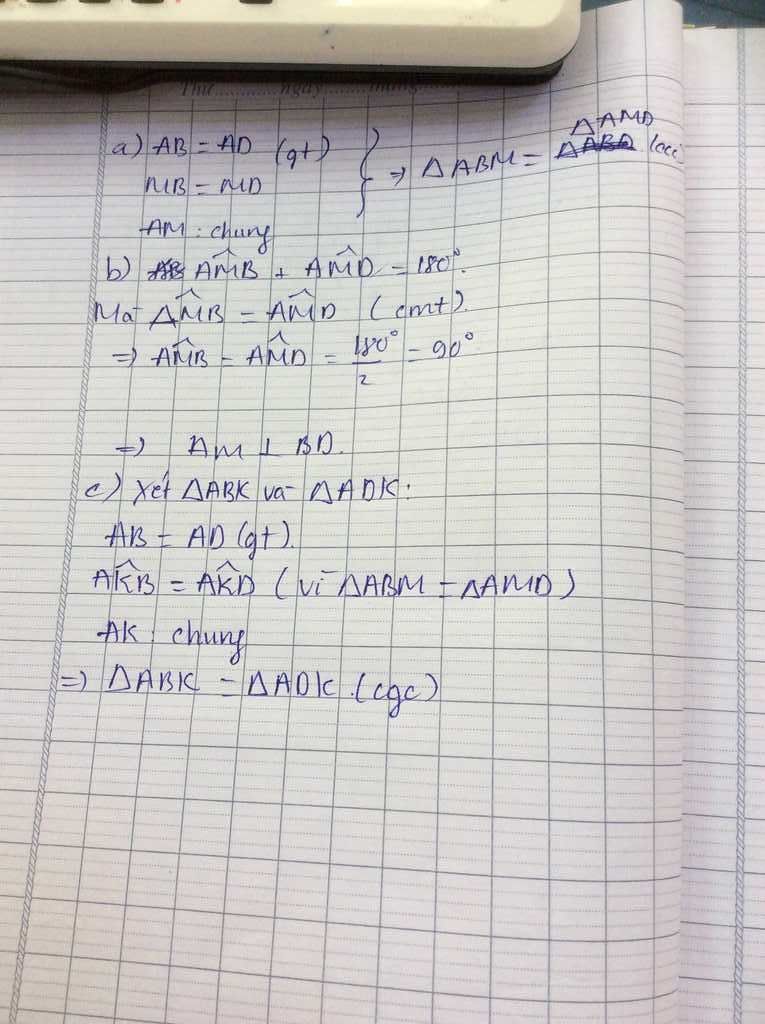 Thứ.............ngày.............tháng.............
a) AB = AD (gt)
MB = MD
AM : chung
} => ΔABM = ΔAMD (ccc)
b) AM̂B + AM̂D = 180°.
Mà AM̂B = AM̂D (cmt).
=> AM̂B = AM̂D = 180°/2 = 90°
=> AM ⊥ BD.
c) Xét ΔABK và ΔADK:
AB = AD (gt).
AK̂B = AK̂D (vì ΔABM = ΔAMD)
AK : chung
=> ΔABK = ΔADK. (cgc)